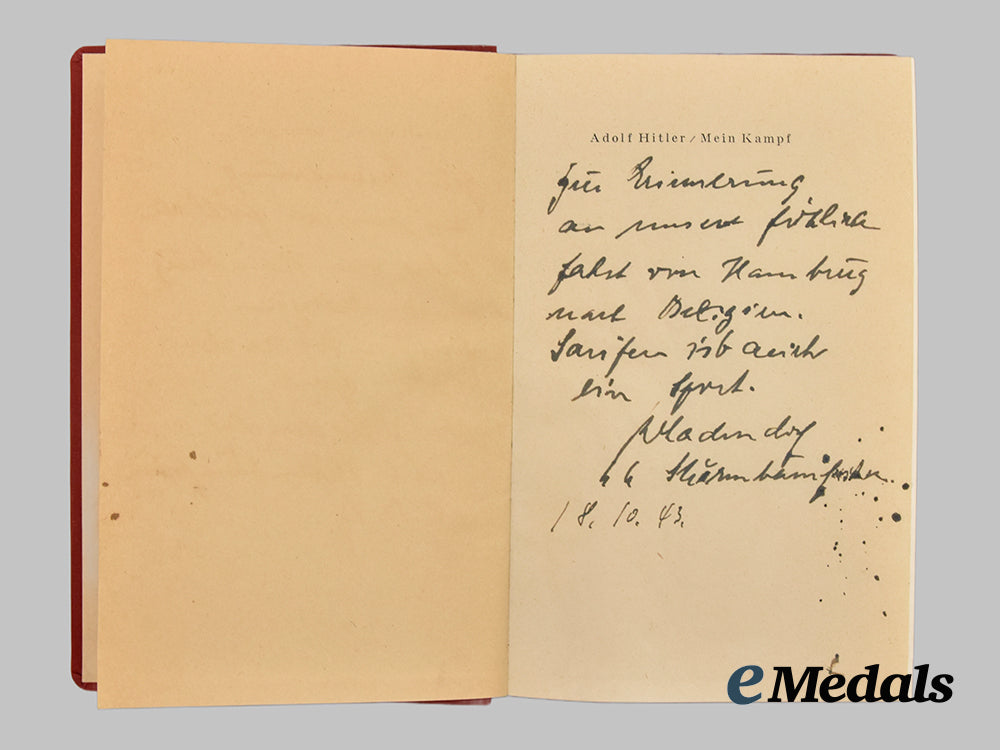 Adolf Hitler / Mein Kampf
Zur Erinnerung
an unsere fröhliche
Fahrt von Hamburg
nach Belgien.
Saufen ist auch
ein Sport.
SS Sturmbannführer.
18.10.43.
eMedals